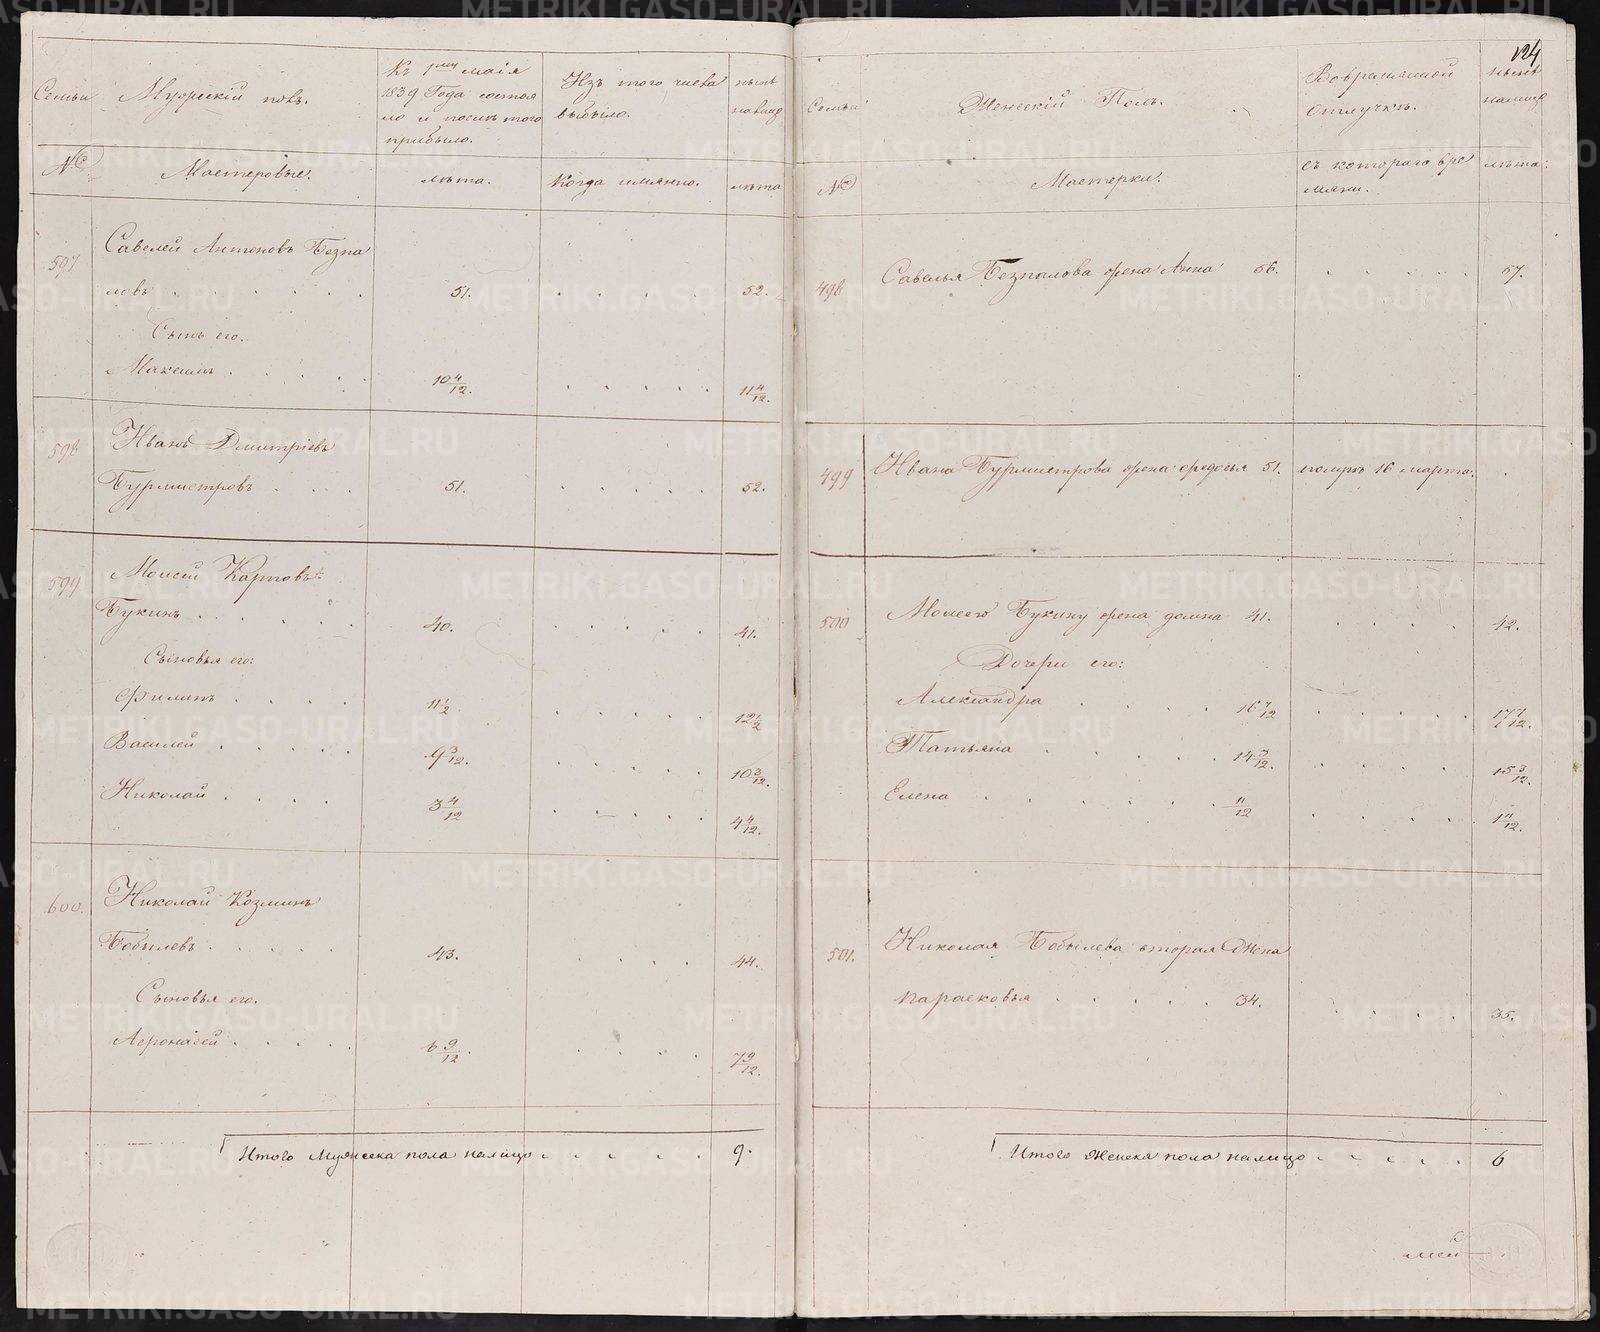 124
Семьи
Мужескій полъ.
Къ 1му маія
1839 Года состоя
ло и послѣ того
прибыло.
Изъ того числа
выбыло.
нынѣ
налицо
№
Мастеровые.
лѣта.
Когда имянно.
лѣта
597
Савелей Антоновъ Безпа
ловъ . . . . . . 51. . . . . . 52.
Сынъ его.
Максимъ . . . . . 10 4/12. . . . . . 11 4/12.
598
Иванъ Дмитріевъ
Бурмистровъ . . . . 51. . . . . . 52.
599
Моисей Карповъ
Букинъ . . . . . . 40. . . . . . 41.
Сыновья его:
Филипъ . . . . 11 1/2 . . . . . 12 1/2
Василей . . . . . 9 3/12. . . . . . 10 3/12.
Николай . . . . 3 4/12 . . . . . 4 4/12.
600.
Николай Козминъ
Бобылевъ . . . . . 43. . . . . 44.
Сыновья его.
Афонасей . . . . . 6 9/12. . . . . 7 9/12.
Итого Мужеска пола налицо . . . . . . 9.
Семьи
Женскій Полъ.
Вовремянной
отлучкѣ.
нынѣ
налицо
№
Мастерки.
съ котораго вре
мяни.
лѣта.
498
Савелья Безпалова жена Анна 56. . . . . . . 57.
499
Ивана Бурмистрова жена Федосья 51. 16 марта.
500
Моисею Букину жена домна 41. . . . . 42.
Дочери его:
Александра . . . . 16 7/12 . . . . . 17 7/12.
Татьяна . . . . . 14 3/12. . . . . 15 3/12.
Елена . . . . . . 11/12 . . . . . 1 11/12.
501.
Николая Бобылева вторая Жена
Парасковья . . . . . 34. . . . . 35.
Итого Женска пола налицо . . . . . 6